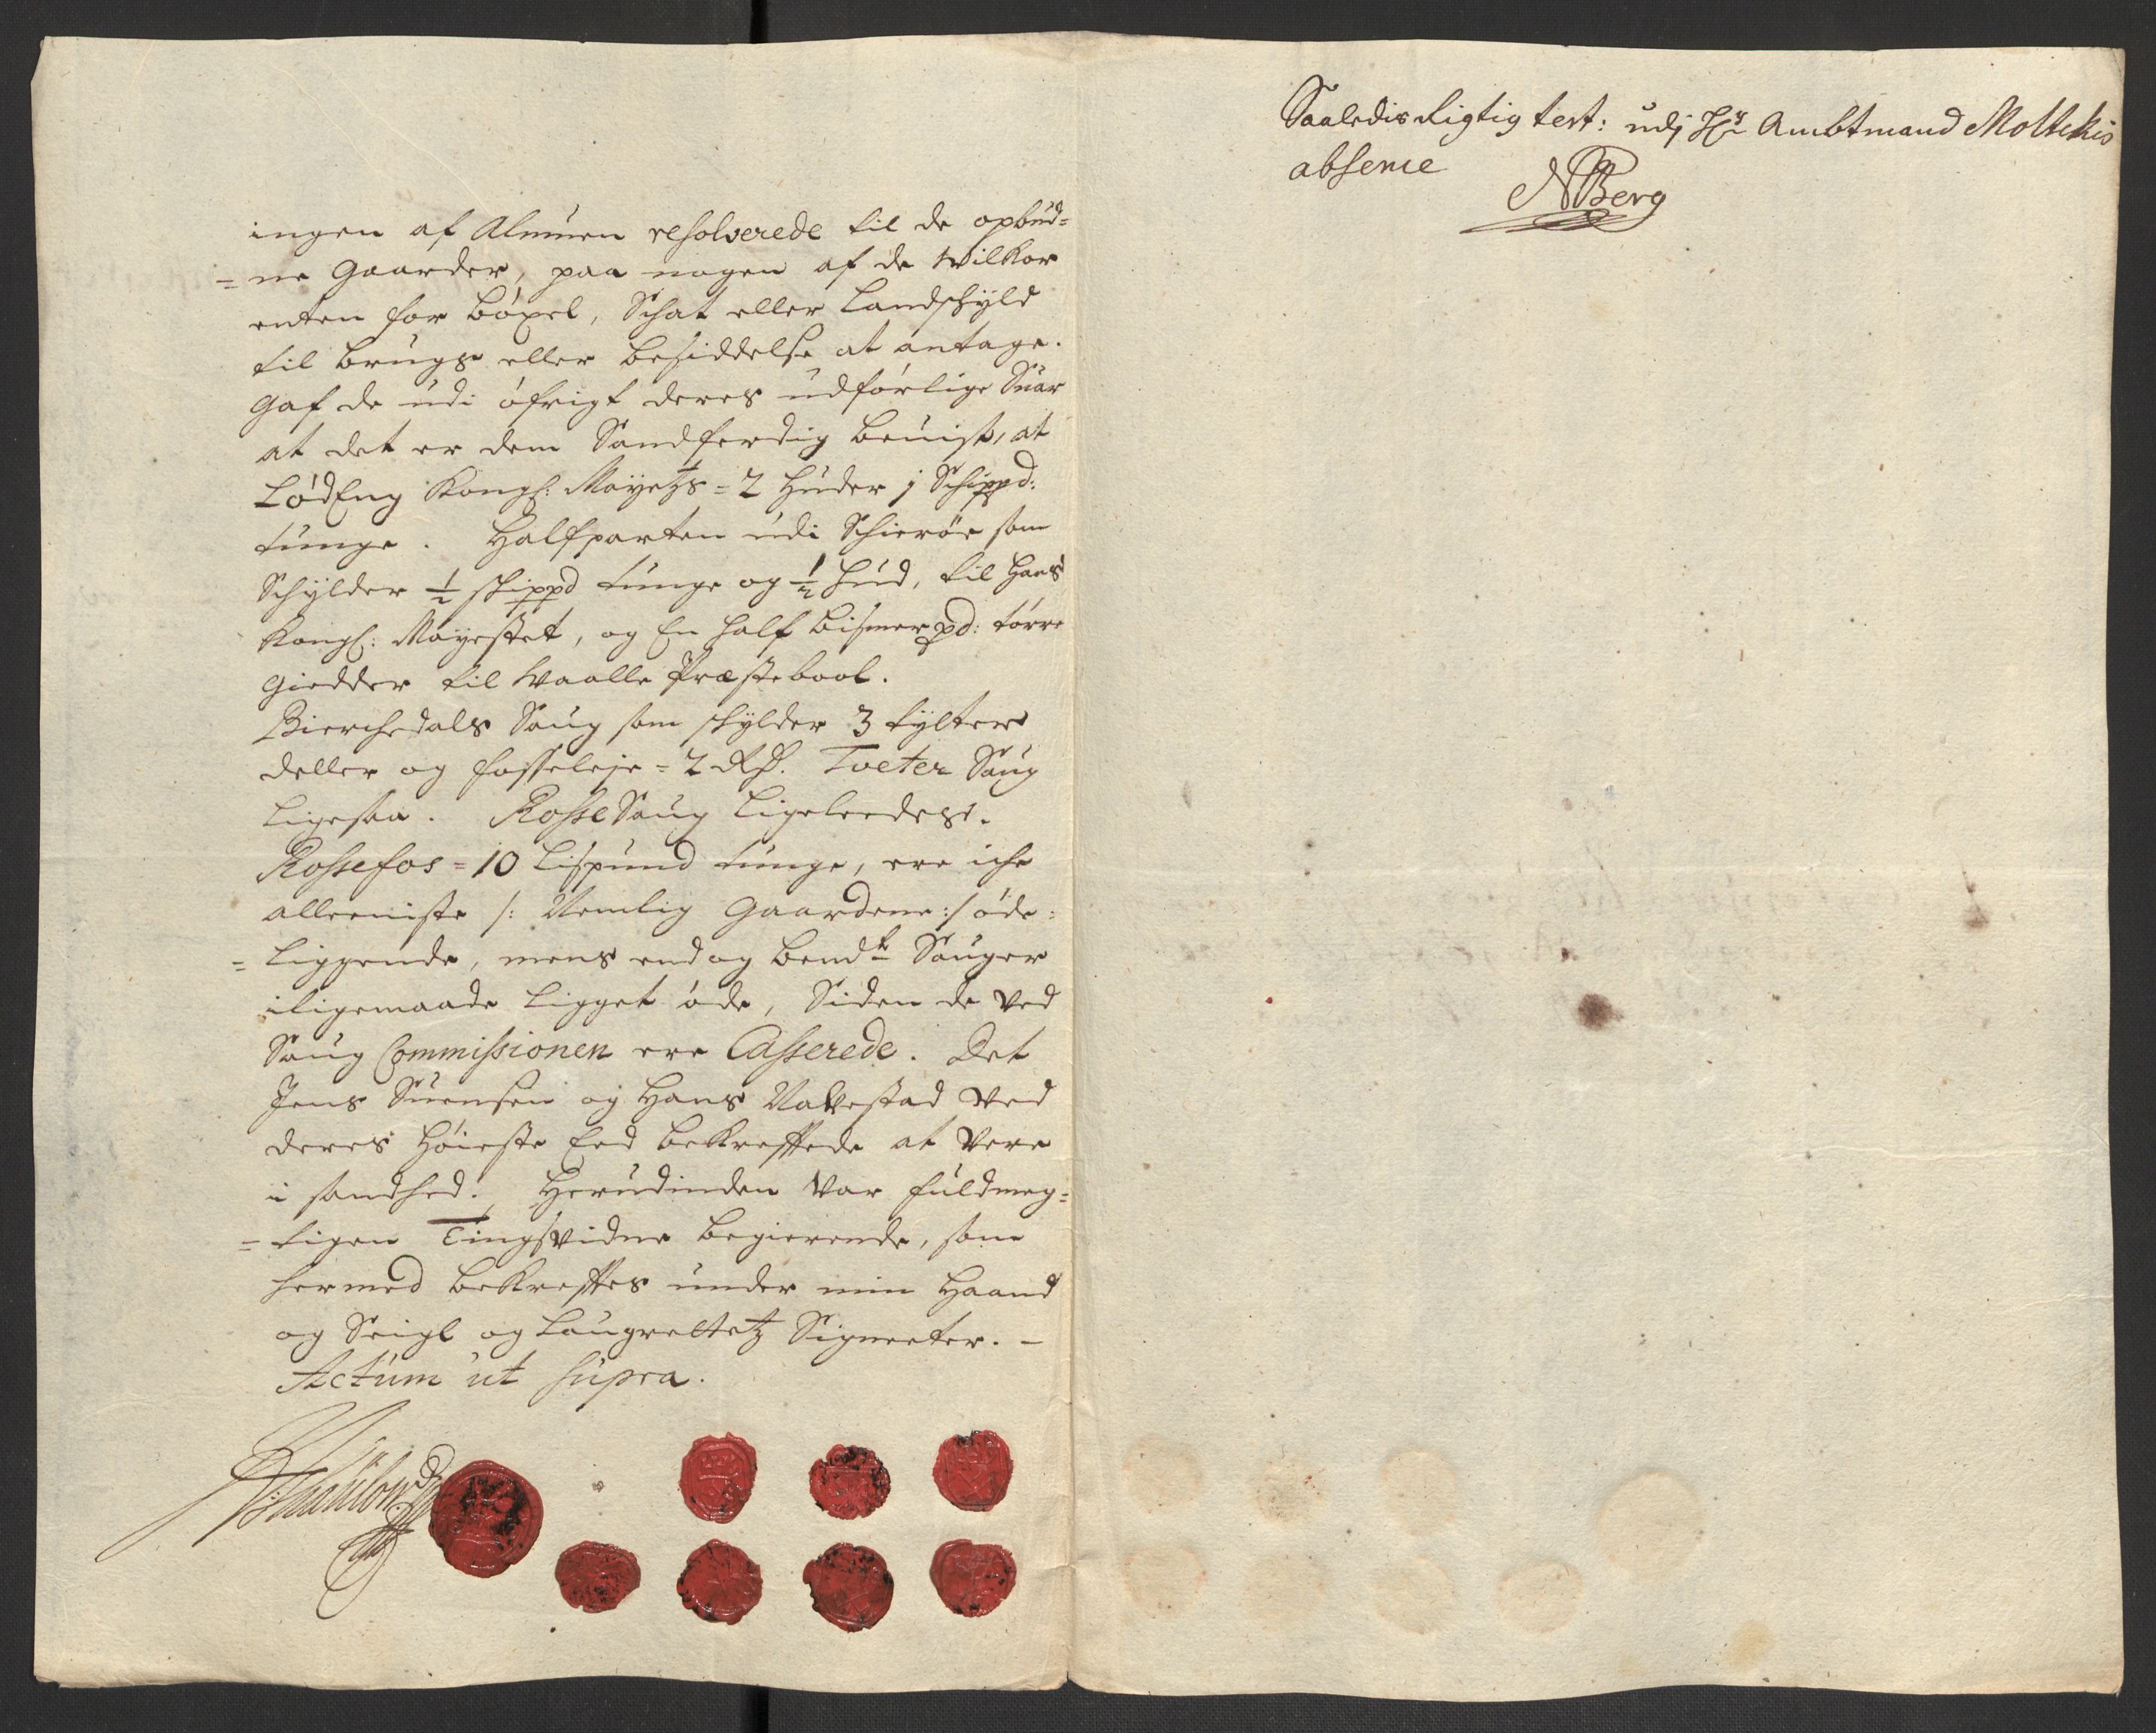 ingen af Almuen resolverede til de opbud=
=ne Gaarder, paa nogen af de Wilkor
enten for böxel, Schat eller Landschyld
til brugs eller besiddelse at antage.
Gaf de udi öfrigt deres udförlige Suar
at det er dem Sandferdig beuist, at
LödEng Kongl: Mayetz = 2 Huder 1 Schippd:
tunge. Halfparten udi Schieröe som
Schylder ½ skippd tunge og ½ hud, til Hans
Kongl: Mayestet, og En half bismerpd: törre
Giedder til Waalle Præstebool.
Bierchedals Saug som schylder 3 tylter
deller og fosseleje = 2 Rdr. Tveter Saug
Ligesaa. Rosse Saug Ligeleedes.
Rossefos = 10 Lispund tunge, ere iche
alleeniste /: Nemlig Gaardene :/ öde=
=liggende, mens endog bemdte Sauger
iligemaade Ligget öde, Siden de ved
Saug Commissionen ere Casserede. Det
Jens Suensen og Hans Navestad ved
deres Höieste Eed bekreftede at vere
i sandhed. Herudinden var fuldmeg=
=tigen Tingsvidne begierende, som
hermed bekreftes under min Haand
og Seigl og Laugrettetz Signeter. –
Actum ut supra.
Saaledis Rigtig test: udj Hr Ambtmand Moltckis
absence
NBerg